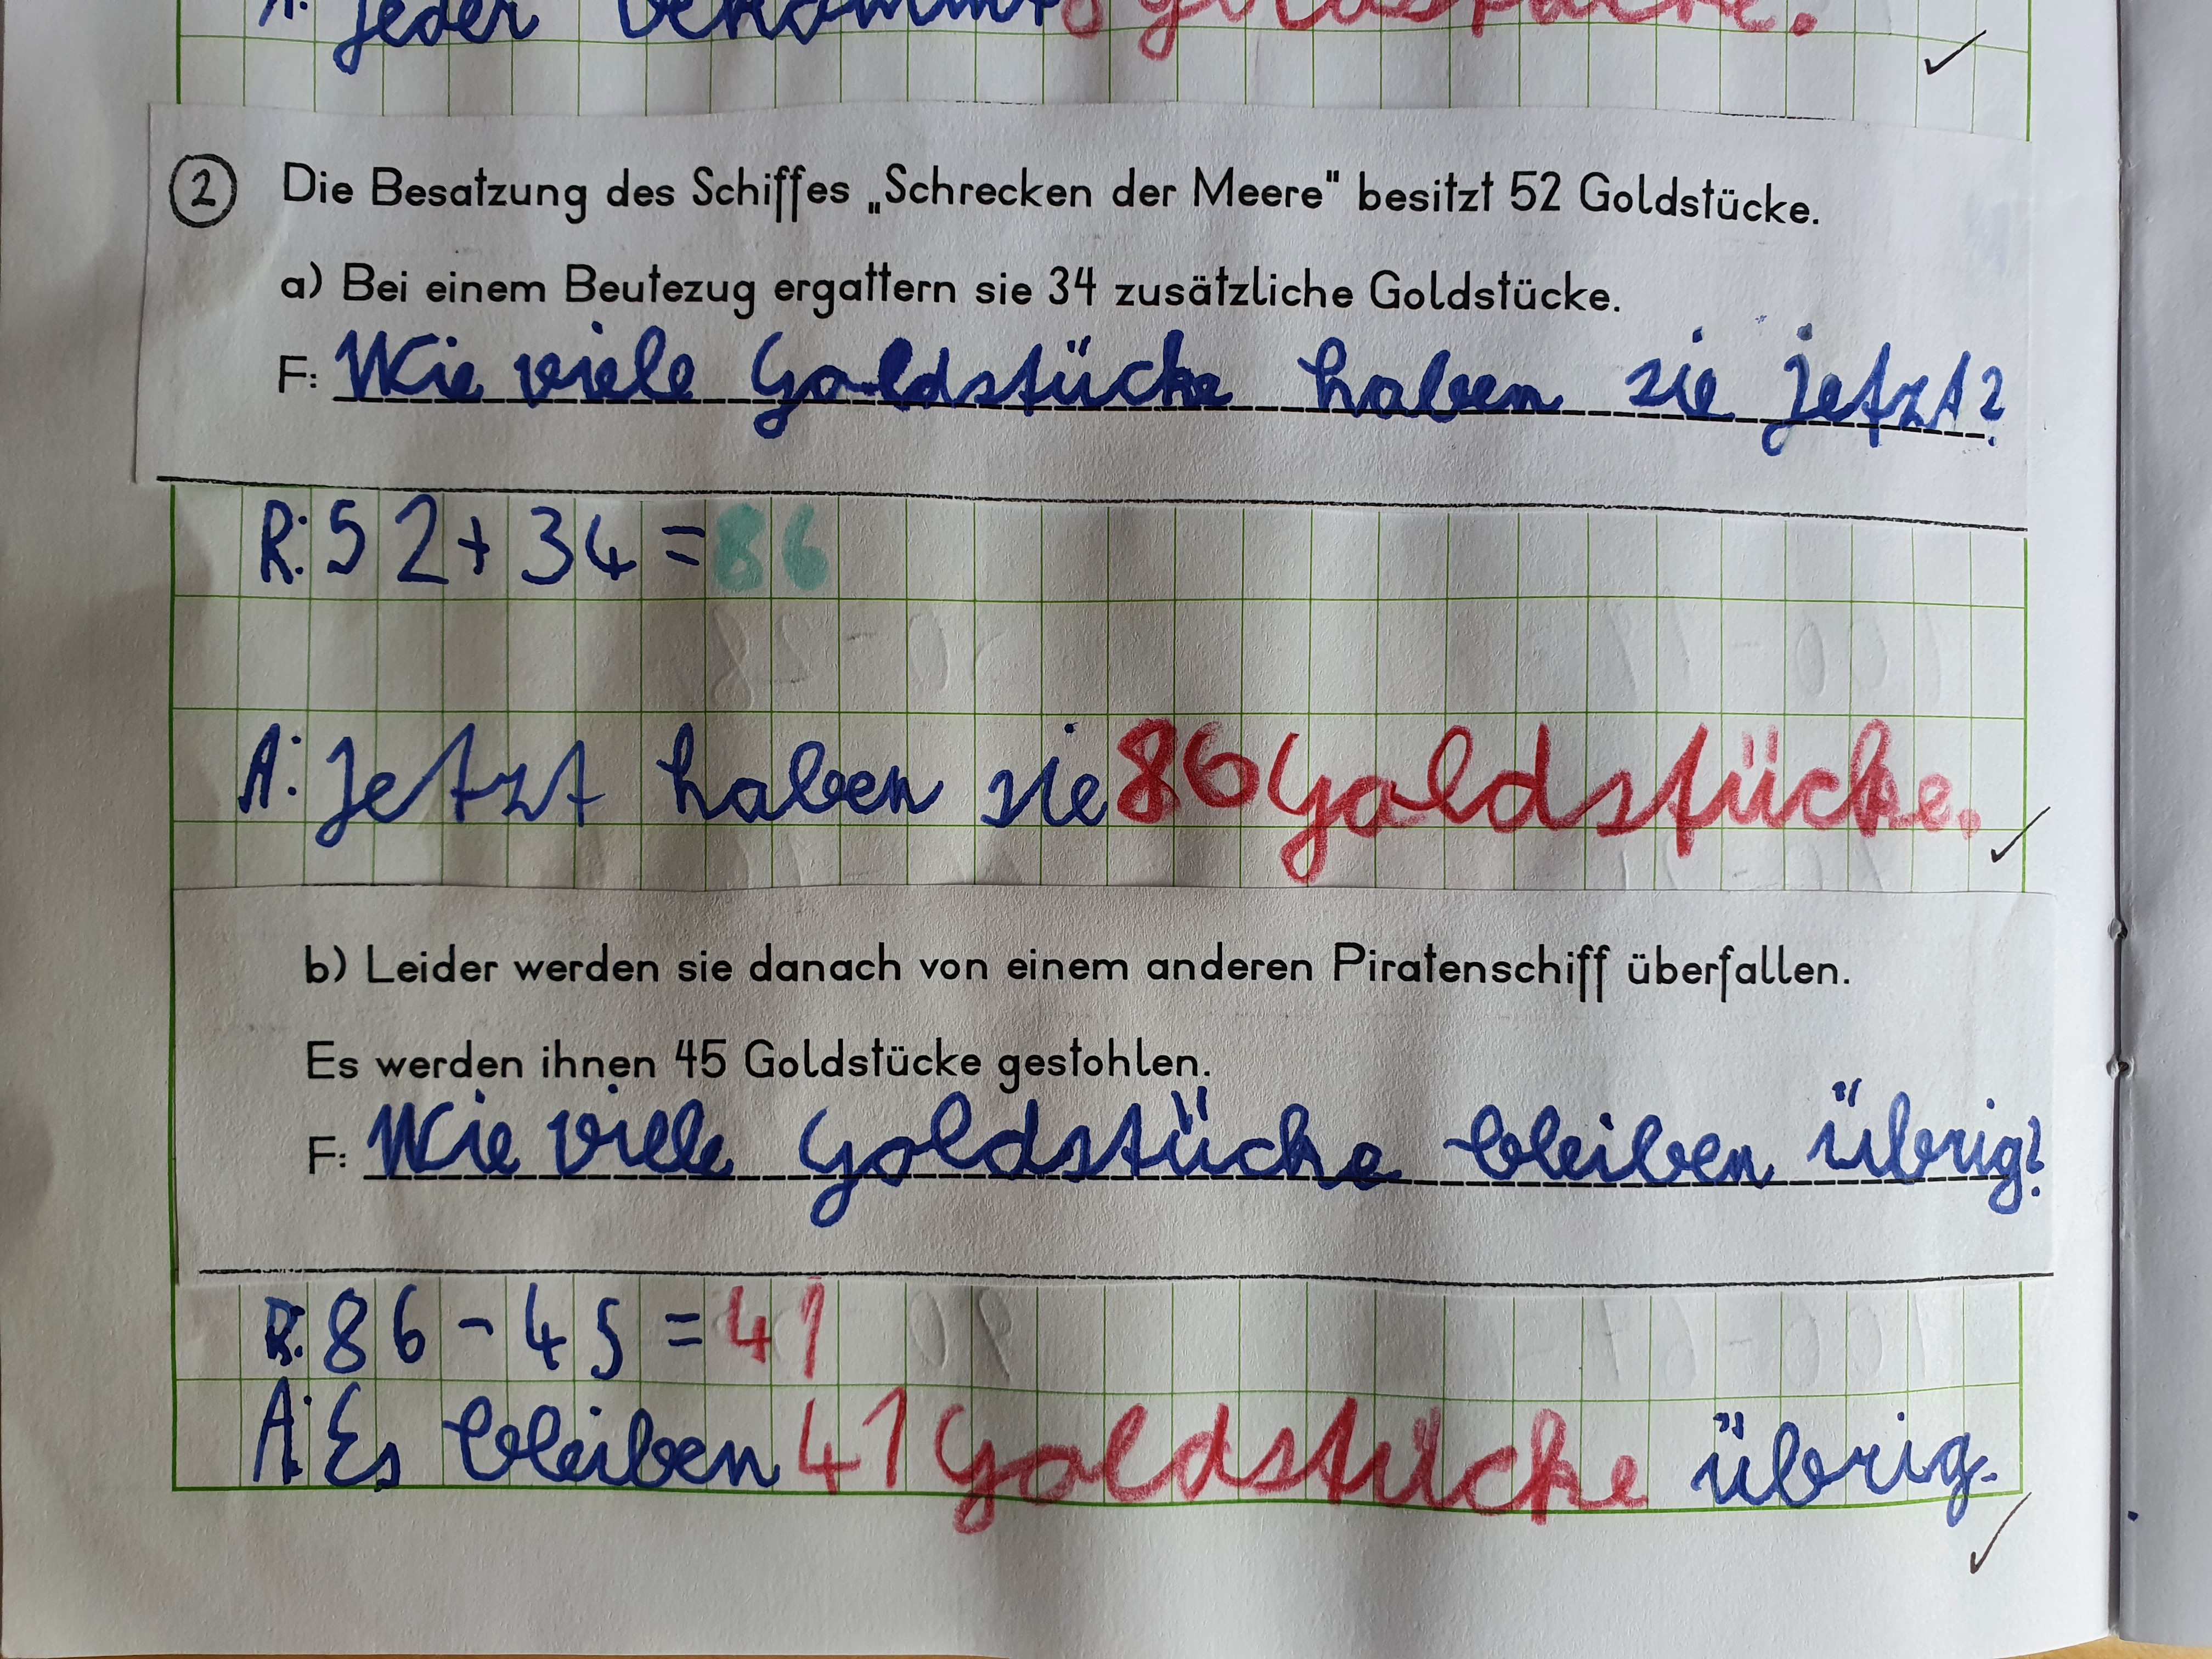 A: Jeder bekommt 8 Goldstücke.
2 Die Besatzung des Schiffes „Schrecken der Meere" besitzt 52 Goldstücke.
a) Bei einem Beutezug ergattern sie 34 zusätzliche Goldstücke.
F: Wie viele Goldstücke haben sie jetzt?
R: 52 + 34 = 86
A: Jetzt haben sie 86 Goldstücke.
b) Leider werden sie danach von einem anderen Piratenschiff überfallen.
Es werden ihnen 45 Goldstücke gestohlen.
F: Wie viele Goldstücke bleiben übrig?
R: 86 - 45 = 41
A: Es bleiben 41 Goldstücke übrig.